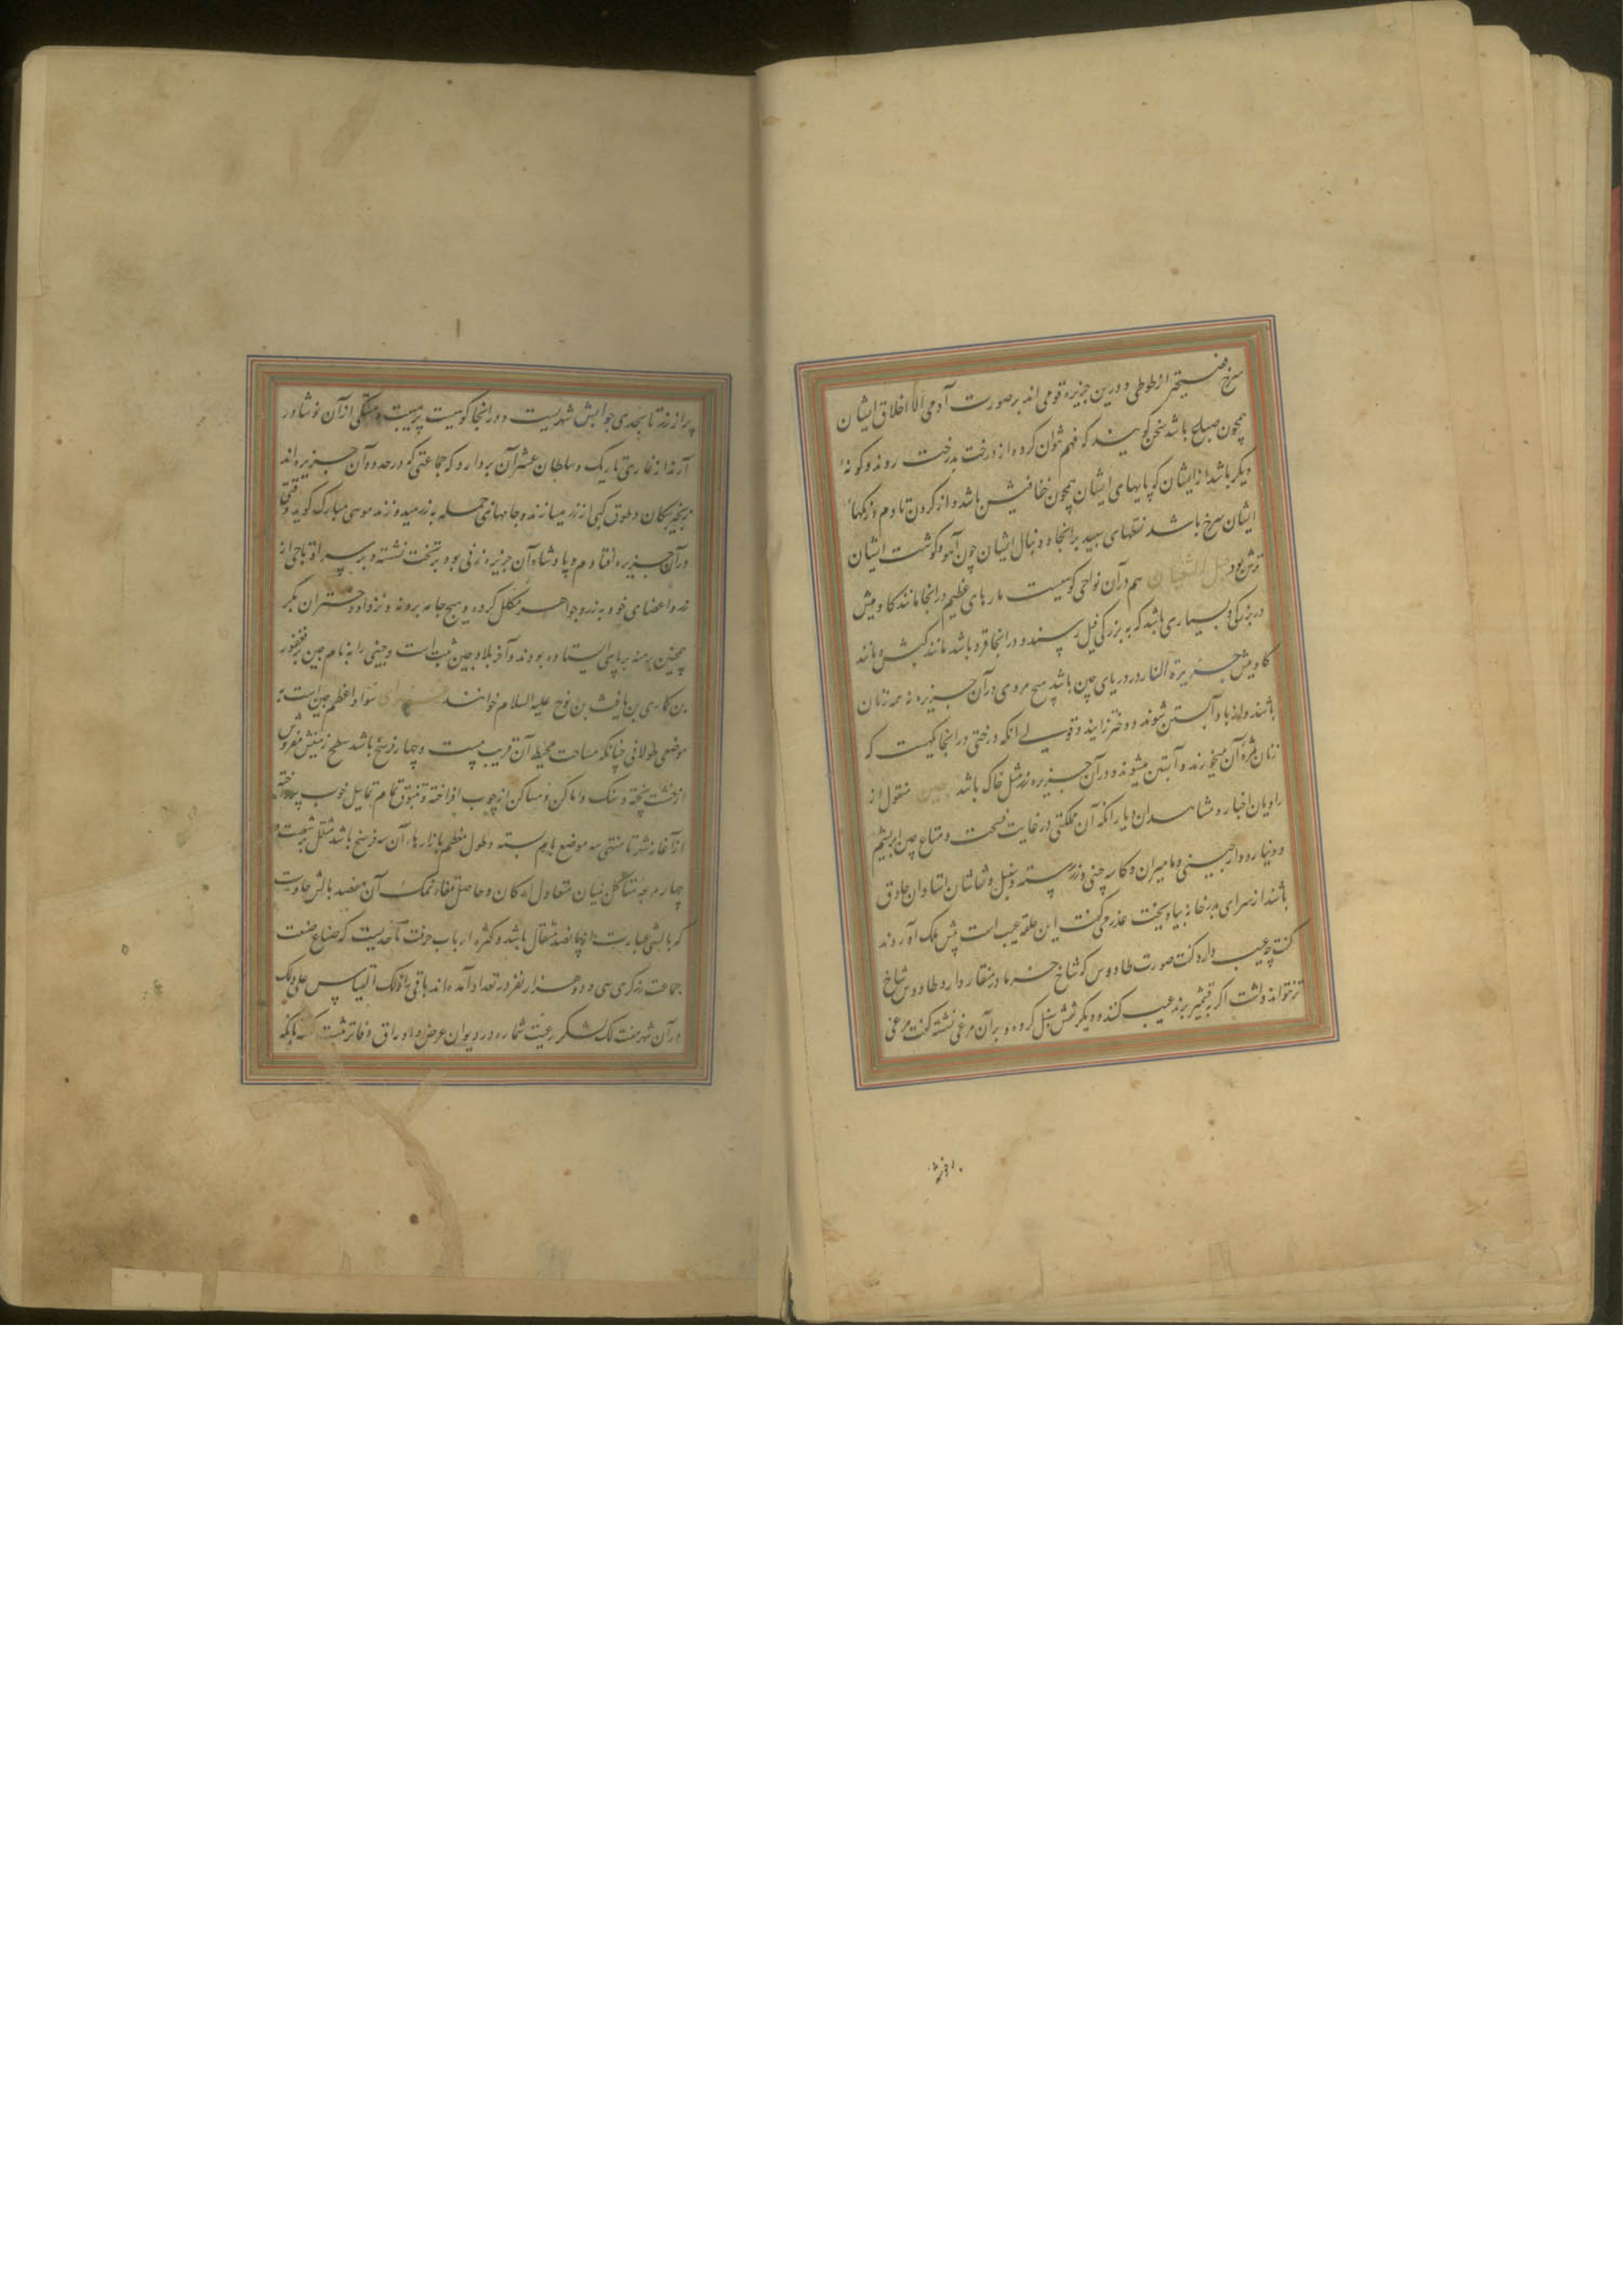 سرخ از طوطی و درین جزیره قومی اند بر صورت آدمی الا اخلاق ایشان
همچون باشد سخن کویند که فهم توان کرد و از درخت بدرخت روند و کونهٔ
دیکر باشد از ایشان که پایهای ایشان همچون خفافیش باشد و از کردن تا دم و رنکهاء
ایشان سرخ باشد نقطهای سپید بر انجا و دنبال ایشان چون آهو و کوشت ایشان
ترش بود جبل الثعبان هم در آن نواحی کوهیست مارهای عظیم در انجا مانند کاومیش
در بزرکی و بسیاری باشد که به بزرکی فیل رسند و در انجا قرده باشد مانند کپش و مانند
کاومیش جزیرة النار در دریای چین باشد هیچ مردی در آن جزیره نه همه زنان
باشند و از باد آبستن شوند و دختر زایند و قولی انکه درختی در انجا یکهست که
زنان ثمرهٔ آن میخورند و آبستن میشوند و در آن جزیره زر مثل خاک باشد چین منقول از
راویان اخبار و مشاهدان دیار انکه آن مملکتی در غایت فسحت و متاع چین ابریشم
و دینار و دار چینی و مامیران و کاسه چینی و زر و نقاشان استادان حاذق
باشند از سرای بدرخانه بیاویخت عذر می کفت این حله عیب است پیش ملک آوردند
کفت چه عیب دارد کفت صورت طاووس که شاخ خرما در منقار دارد طاووس شاخ
نتواند داشت اکر بر ند عیب کنند و دیکر نقش سنبل کرده و بر آن مرغی نشسته کفت مرغی
پر از زر تا بجدی جوابش شهریست و در انجا کوهیست
آرند از غاری تاریک و سلطان عشر آن بردارد که جماعتی که در حدود آن جزیره اند
زنجیر سکان و طوق کپی از زر میسازند و جامهای جمله به زر موسی مبارک کوید وقتی
در آن جزیره افتادم و پادشاه آن جزیره زنی بود بر تخت نشسته و بر سر او تاجی از
زر و اعضای خود به زر و جواهر مکلل کرده و هیچ جامه بر و نه و نزد او دختران بکر
همچنین برهنه بر پای ایستاده بودند و آخر بلاد چین تبت است و چینی را بنام چین بن فغفور
بن کماری بن یافث بن نوح علیه السلام خوانند سواد اعظم چین است
موضعی طولانی چنانکه مساحت محیط آن قریب بیست و چهار فرسخ باشد سطح زمینش مفروش
از خشت پخته و سنک و اماکن و مساکن از چوب افراخته و تماثیل خوب پرداخته
از آغاز شهر تا منتهی سه موضع یام بسته و طول معظم بازارها، آن سه فرسخ باشد مشتمل بر شصت و
چهار مربعه متشاکل بنیان متعادل ارکان و حاصل تمغاء نمک آن هفصد بالش چاوست
که بالشی عبارت از پانصد مثقال باشد و کثرة ارباب حرفت تا حدیست که صناع صنعت
جماعت زرکری سی و دو هزار نفر در تعداد آمده اند باقی را از آن قیاس علی ذلک
در آن شهر هفت لک لشکر و رعیت شماره در دیوان عرض و اوراق دفاتر ثبت کنند بانکه